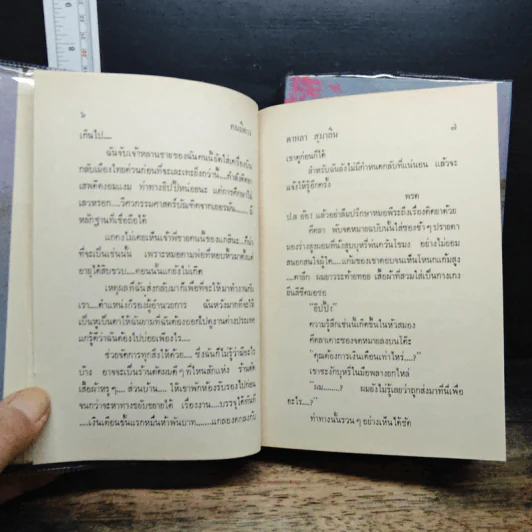 ๖
คนมีคาว
เกินไป....
ฉันจับเจ้าหลานชายของฉันคนนี้ยัดใส่เครื่องบิน
กลับเมืองไทยด่วนก่อนที่จะเละเทะยิ่งกว่านี้....กำลังติดยา
เสพติดงอมแงม ท่าทางฮิปปี้หน่อยนะ แต่การศึกษาไม่
เลวหรอก....วิศวกรรมศาสตร์บัณฑิตจากเยอรมัน.....มี
หลักฐานที่เชื่อถือได้
แกคงไม่เคยเห็นเจ้าพี่ชายคนนี้ของแกสินะ....ก็น่า
ที่จะเป็นเช่นนั้น เพราะหมอตามพ่อที่หอบหิ้วมาตั้งแต่
อายุได้สิบขวบ....ตอนนั้นแกยังไม่เกิด
เหตุผลที่ฉันส่งกลับมาก็เพื่อที่จะให้มาทำงานกับ
เรา....ตำแหน่งรองผู้อำนวยการ ฉันหวังมากที่จะให้
เป็นหูเป็นตาให้ฉันยามที่ฉันต้องออกไปดูงานต่างประเทศ
แกรู้ดีว่าฉันต้องไปบ่อยเพียงไร....
ช่วยจัดการทุกสิ่งให้ด้วย.... ซึ่งฉันก็ไม่รู้ว่ามีอะไร
บ้าง อาจจะเป็นร้านตัดผมดีๆ ที่ไหนสักแห่ง ร้านตัด
เสื้อผ้าหรูๆ.... ส่วนบ้าน.... ให้เขาพักห้องรับรองไปก่อน
จนกว่าจะหาทางขยับขยายได้ เรื่องงาน....บรรจุได้ทันที
....เงินเดือนขั้นแรกหมื่นห้าพันบาท......แกลองตกลงกับ
ดาหลา สุมาลิน
๗
เขาดูก่อนก็ได้
สำหรับฉันยังไม่มีกำหนดกลับที่แน่นอน แล้วจะ
แจ้งให้รู้อีกครั้ง
พรต
ป.ล อ้อ! แล้วอย่าลืมปรึกษาหมอพีระถึงเรื่องติดยาด้วย
คีตลา พับจดหมายฉบับนั้นใส่ซองช้าๆ ปรายตา
มองร่างสูงผอมที่นั่งสูบบุหรี่พ่นควันโขมง อย่างไม่ยอม
สนอกสนใจผู้ใด....แก้มของเขาตอบจนเห็นโหนกแก้มสูง
....ตาลึก ผมยาวระท้ายทอย เสื้อผ้าที่สวมใส่เป็นกางเกง
ยีนส์ซีดมอซอ
“ฮิปปี้!”
ความรู้สึกเช่นนี้เกิดขึ้นในหัวสมอง
คีตลาเคาะซองจดหมายลงบนโต๊ะ
“คุณต้องการเงินเดือนเท่าไหร่....?”
เขาชะงักบุหรี่ในมือพลางยกไหล่
“ผม.........? ผมยังไม่รู้เลยว่าถูกส่งมาที่นี่เพื่อ
อะไร....?”
ท่าทางนั้นรวนๆ อย่างเห็นได้ชัด